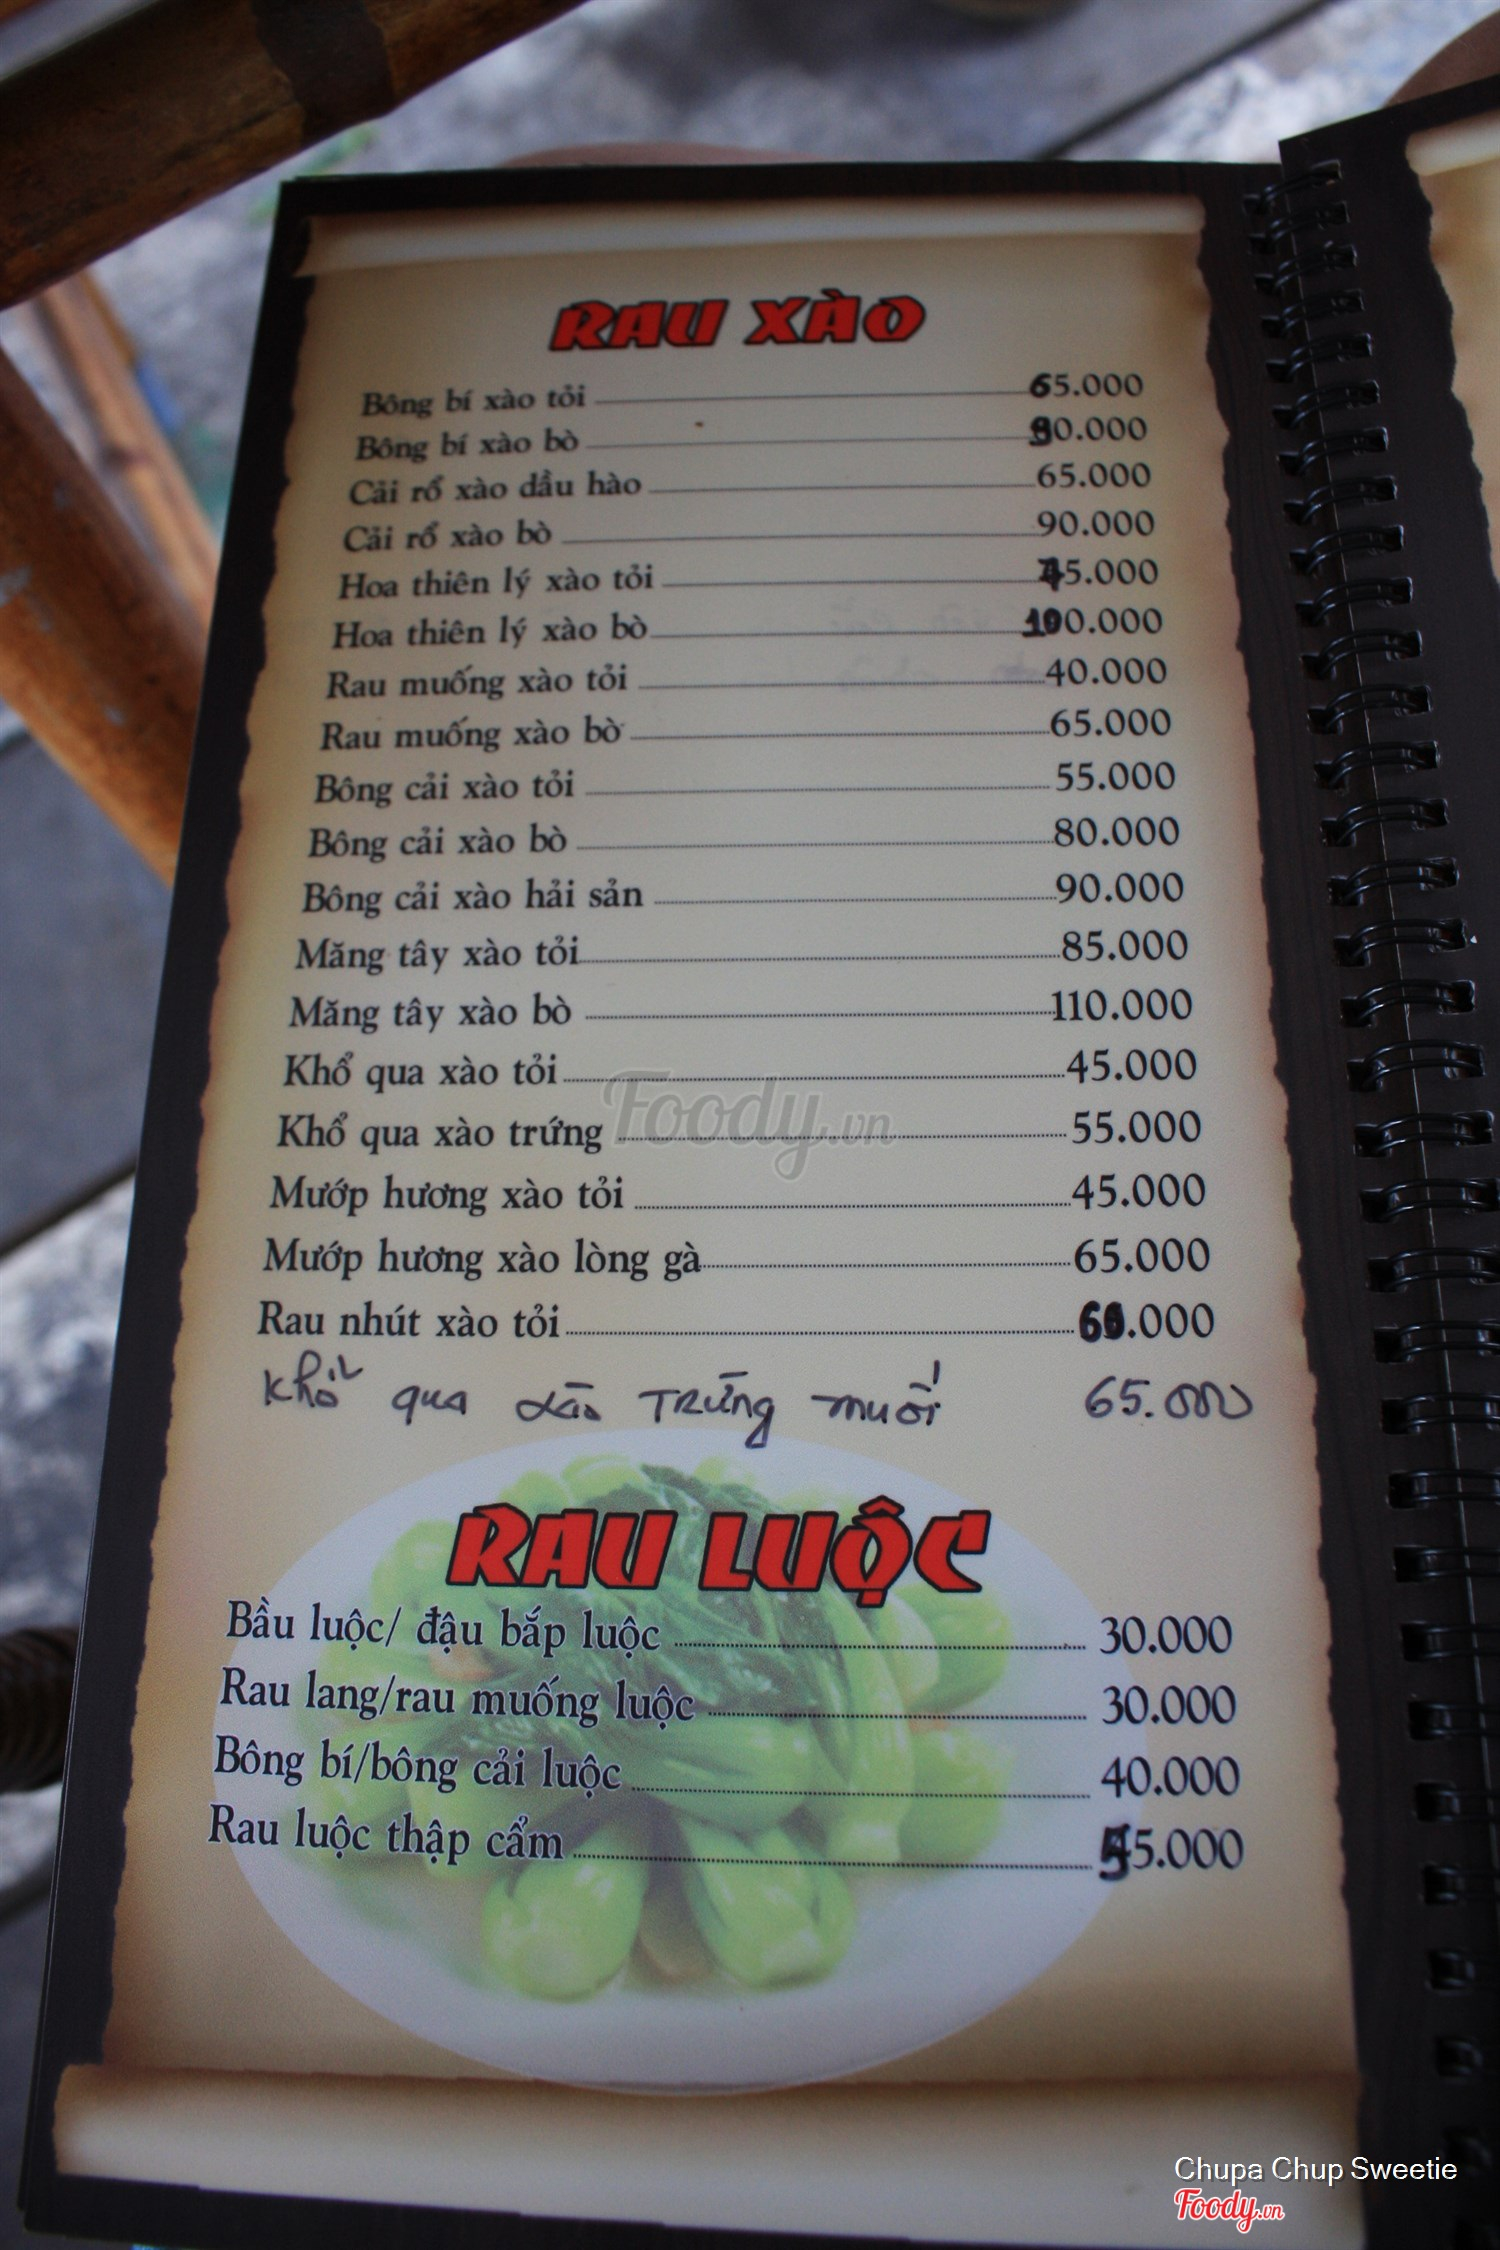 RAU XÀO
Bông bí xào tỏi 65.000
Bông bí xào bò 90.000
Cải rổ xào dầu hào 65.000
Cải rổ xào bò 90.000
Hoa thiên lý xào tỏi 75.000
Hoa thiên lý xào bò 100.000
Rau muống xào tỏi 40.000
Rau muống xào bò 65.000
Bông cải xào tỏi 55.000
Bông cải xào bò 80.000
Bông cải xào hải sản 90.000
Măng tây xào tỏi 85.000
Măng tây xào bò 110.000
Khổ qua xào tỏi 45.000
Khổ qua xào trứng 55.000
Mướp hương xào tỏi 45.000
Mướp hương xào lòng gà 65.000
Rau nhút xào tỏi .000
Khổ qua xào TRứng muối 65.000
RAU LUỘC
Bầu luộc/ đậu bắp luộc 30.000
Rau lang/rau muống luộc 30.000
Bông bí/bông cải luộc 40.000
Rau luộc thập cẩm 55.000
Foody.vn
Chupa Chup Sweetie
Foody.vn